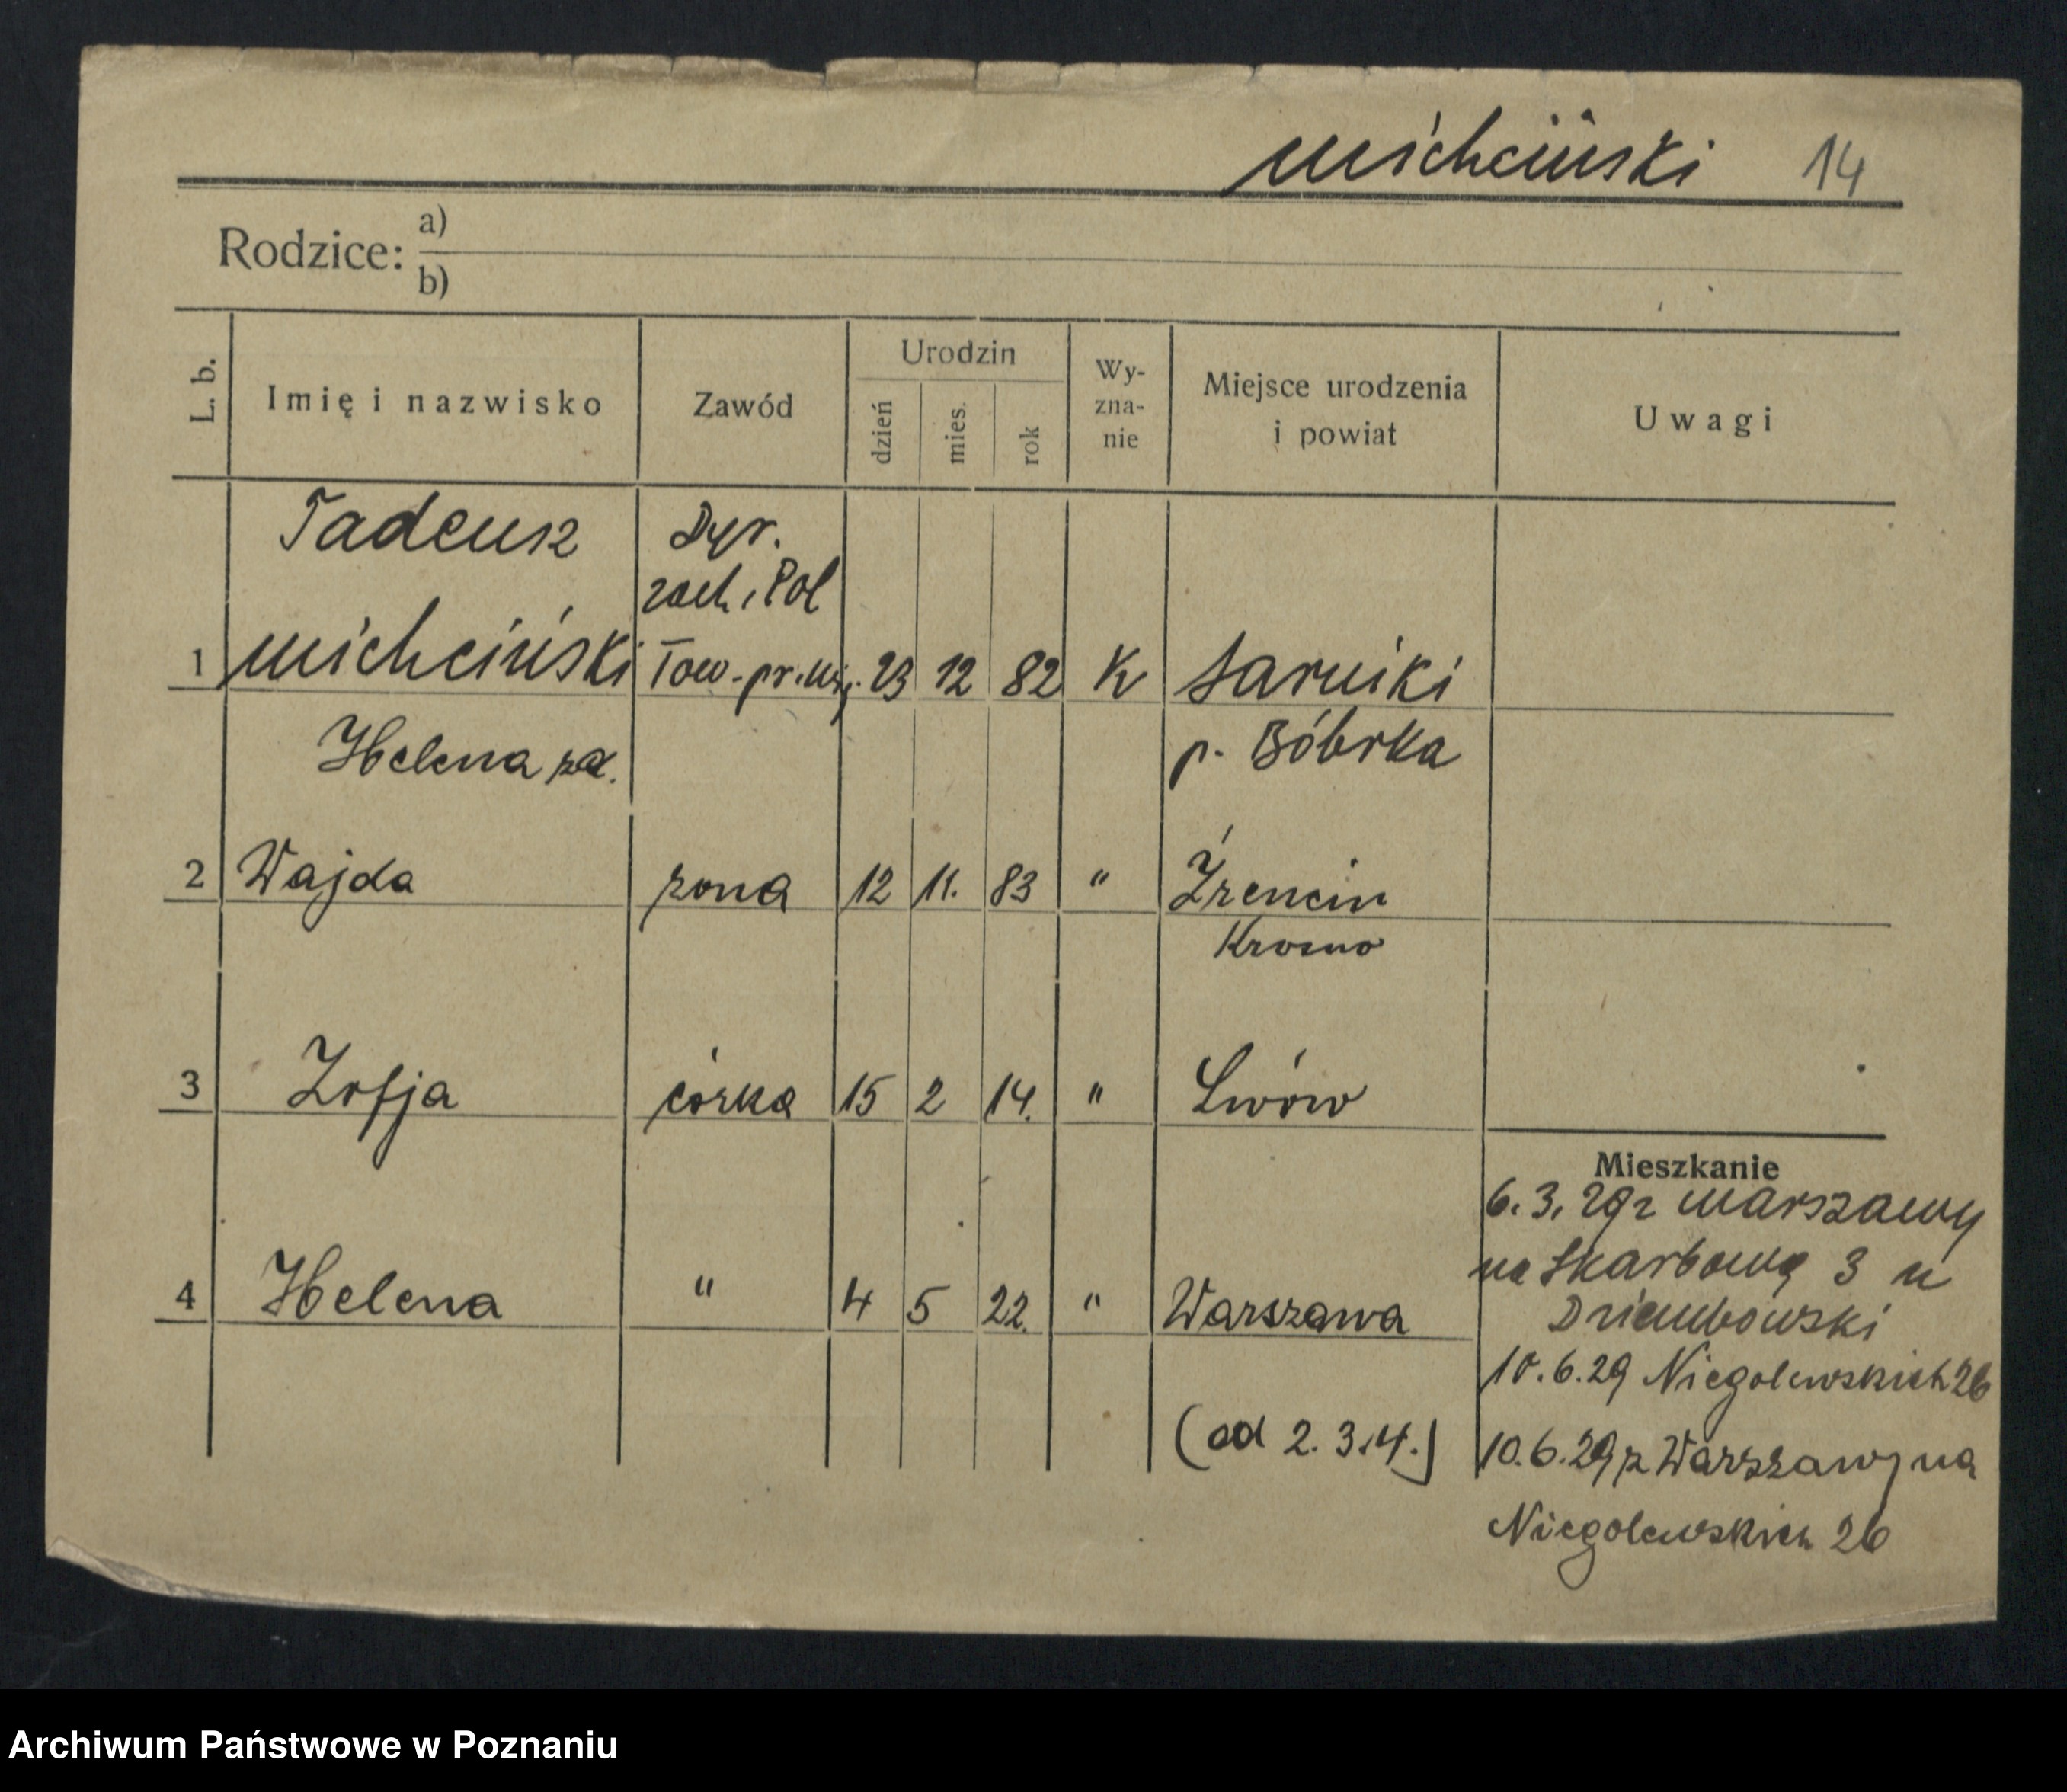 Michciński 14
Rodzice: a)
b)
L. b. Imię i nazwisko Zawód Urodzin dzień mies. rok Wy-zna-nie Miejsce urodzenia i powiat Uwagi
Tadeusz Dyr.
zach. Pol
1 Michciński Tow. pr. 23 12 82 K Sarniki
Helena za. p. Bóbrka
2 Wajda żona 12 11. 83 " Źrencin
Krosno
3 Zofja córka 15 2 14. " Lwów
Mieszkanie
6.3.29 z Warszawy
na Skarbową 3 u
4 Helena " 4 5 22. " Warszawa
Dziembowski
10.6.29 Niegolewskich 26
(od 2.3.4.)
10.6.29 z Warszawy na
Niegolewskich 26
Archiwum Państwowe w Poznaniu